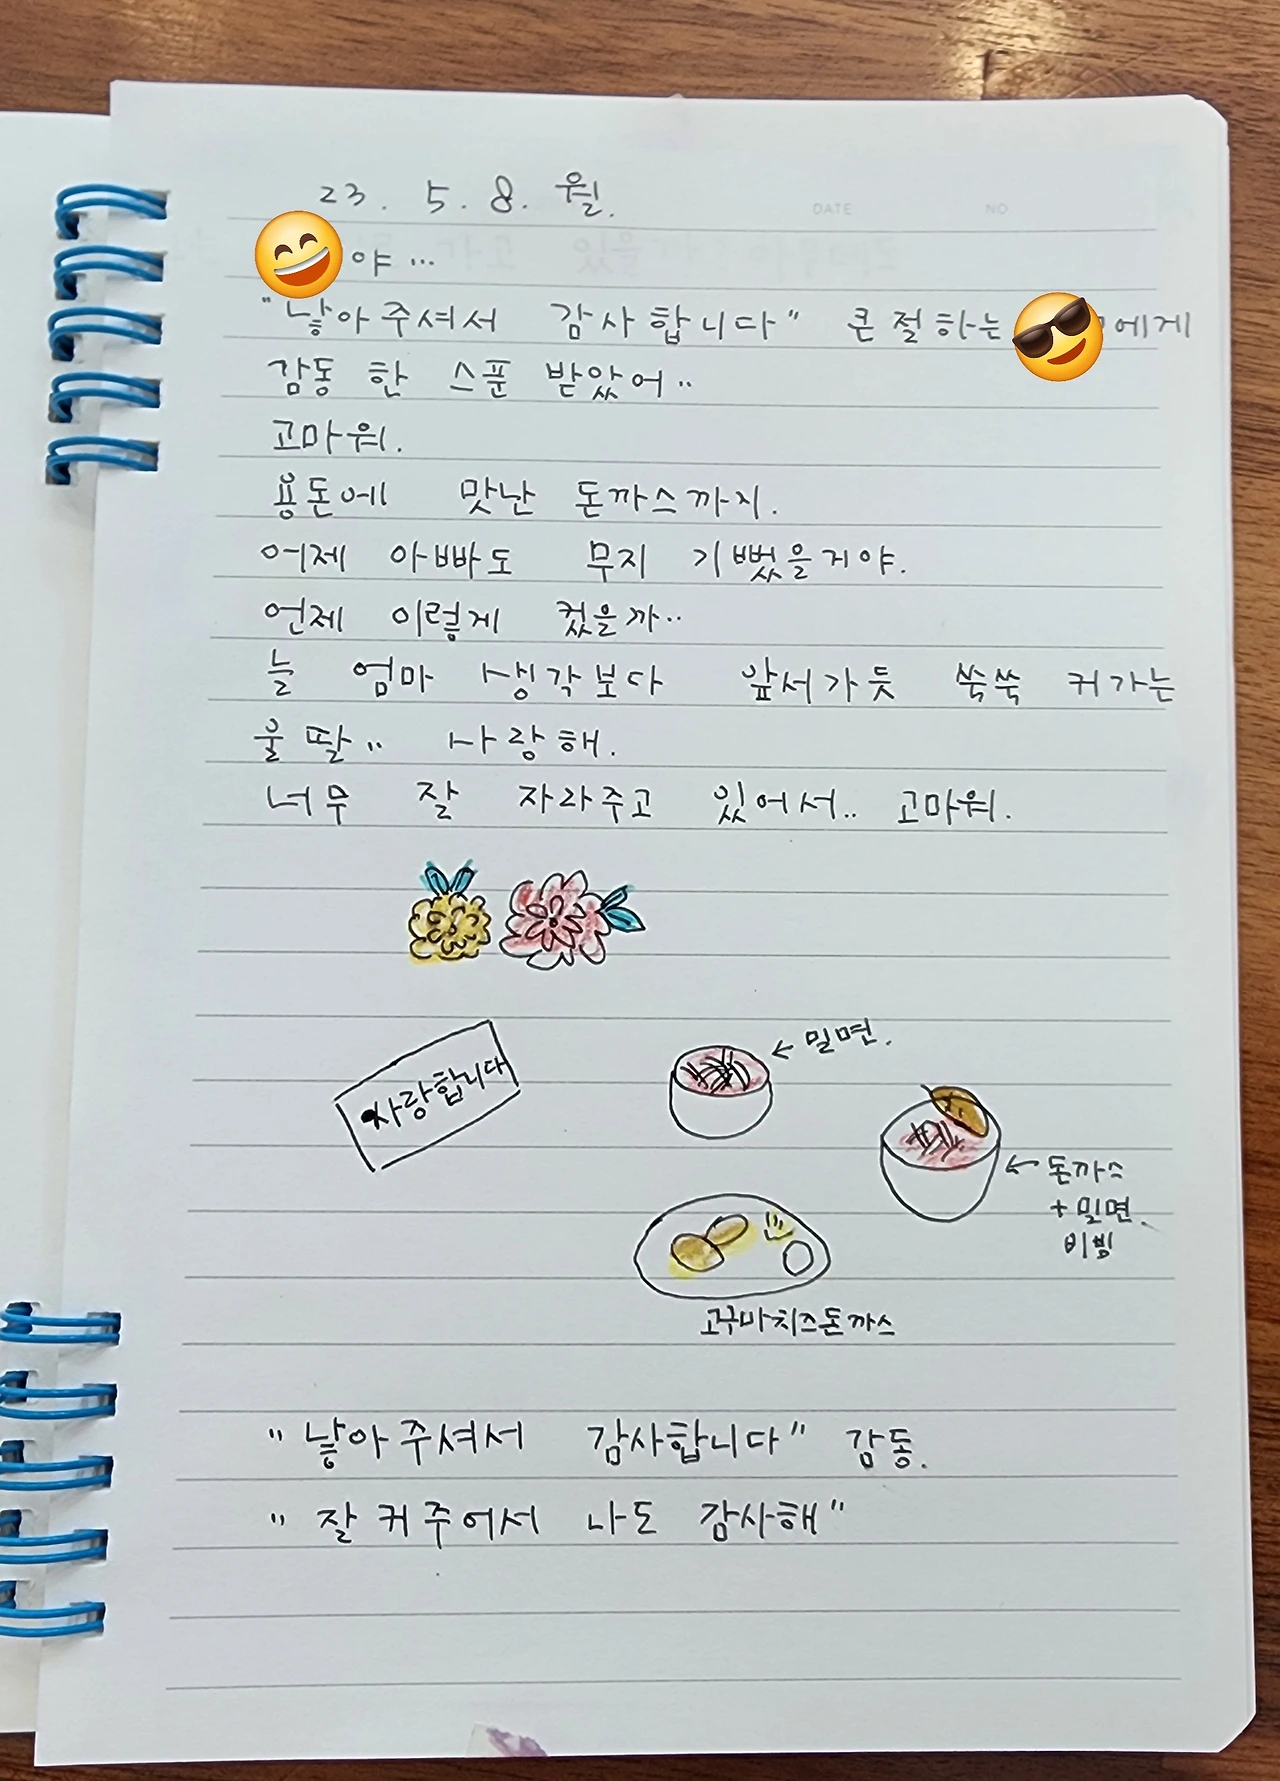 23. 5. 8. 월.
DATE NO
야...
"낳아주셔서 감사합니다" 큰절하는 에게
감동 한 스푼 받았어..
고마워.
용돈에 맛난 돈까스까지.
어제 아빠도 무지 기뻤을거야.
언제 이렇게 컸을까..
늘 엄마 생각보다 앞서가듯 쑥쑥 커가는
울딸.. 사랑해.
너무 잘 자라주고 있어서.. 고마워.
사랑합니다
← 밀면.
← 돈까스
+ 밀면.
비빔
고구마치즈돈까스
"낳아주셔서 감사합니다" 감동.
"잘 커주어서 나도 감사해"